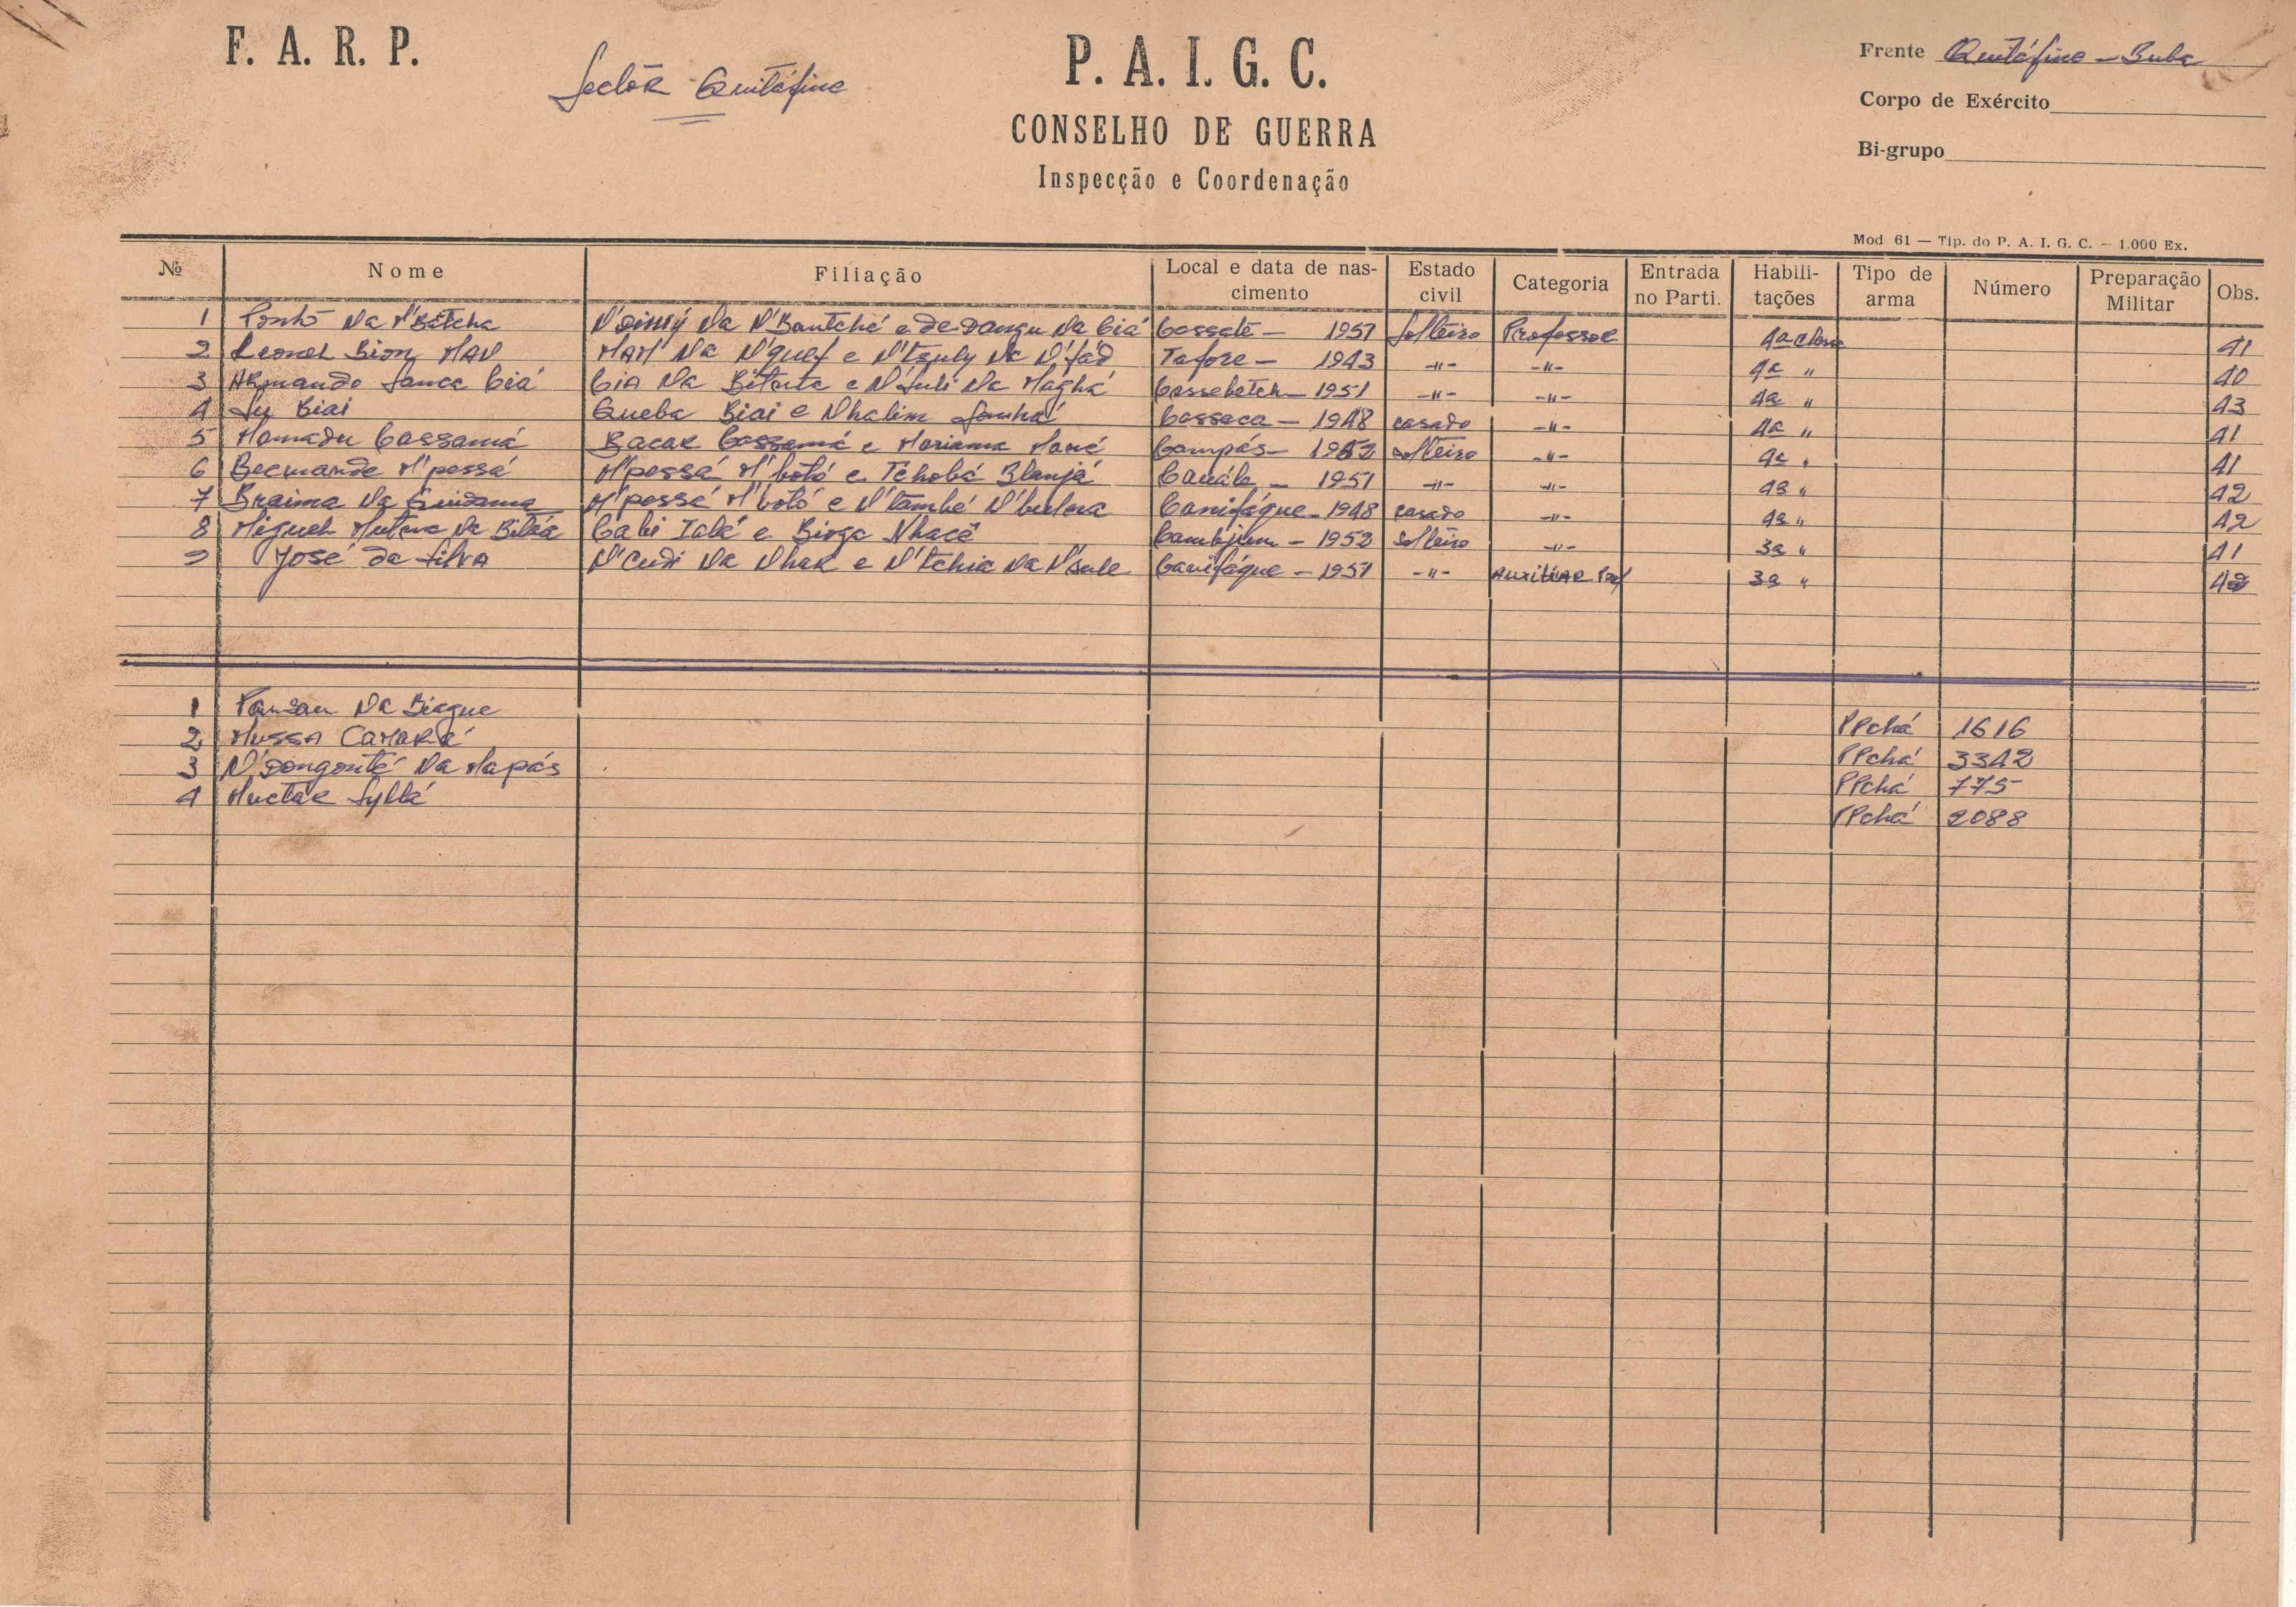 F. A. R. P.
Sectôr - Quitáfine
P. A. I. G. C.
CONSELHO DE GUERRA
Inspecção e Coordenação
Frente Quitáfine - Buba
Corpo de Exército
Bi-grupo
Mod 61 — Tip. do P. A. I. G. C. — 1.000 Ex.
№ Nome Filiação Local e data de nascimento Estado civil Categoria Entrada no Parti. Habilitações Tipo de arma Número Preparação Militar Obs.
1 Na M'Batcha Na N'Bantché e Na Ciá Cassaté - 1951 Solteiro Professor 4a classe 41
2 Leonel Bion NAN Na N'quef e Na N'fád Tafore - 1943 -"- -"- 4a " 40
3 Armando Sanca Ciá Cia Na Bitunta e N'Suli Na Maghá Cassebetch - 1951 -"- -"- 4a " 43
4 Su Biai Queba Biai e Nhalim Sanhá Cassaca - 1948 casado -"- 4a " 41
5 Mamadu Cassamá Bacar Cassamá e Mariama Mané Campás - 1952 solteiro -"- 4a " 41
6 Becmande M'pessá M'pessá M'botó e Tchobá Blanjá Cauále - 1951 -"- -"- 4a " 42
7 Braima Na M'pessé M'botó e N'també Canifáque - 1948 casado -"- 4a " 42
8 Miguel Na Bitáa Cabi Ialá e Nhacá - 1952 solteiro -"- 3a " 41
9 José da Silva N'Cudi Na Nhak e N'tchia Na N'sule Canifáque - 1951 -"- Auxiliar Prof 3a " 42
1 Pansau Na Biague PPchá 1616
2 Mussa Camará PPchá 3342
3 N'Dongonté Na Mapás PPchá 775
4 Muctar Syllá PPchá 2088